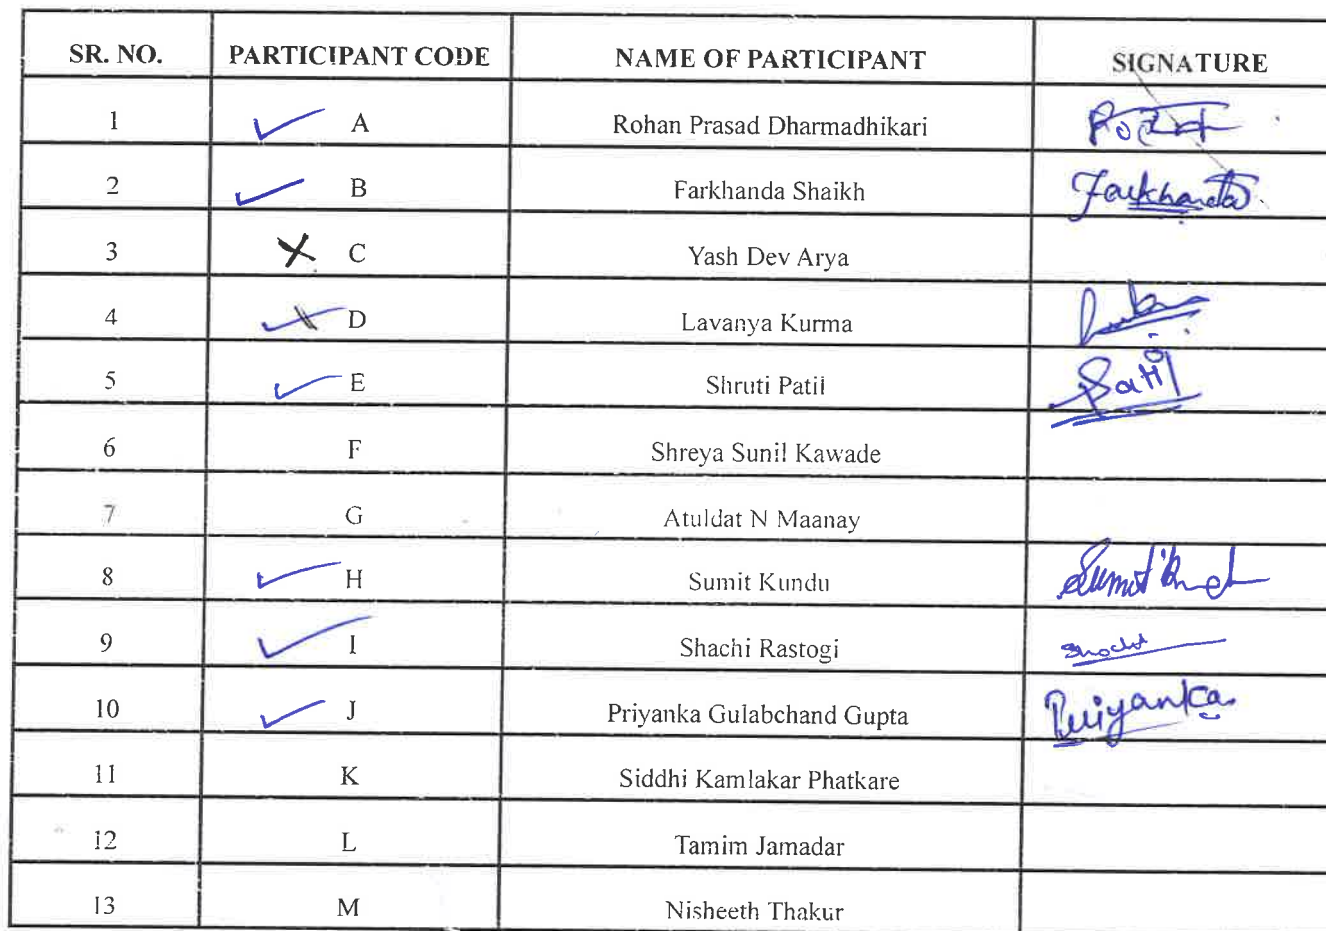 SR. NO. PARTICIPANT CODE NAME OF PARTICIPANT SIGNATURE
1 A Rohan Prasad Dharmadhikari
2 B Farkhanda Shaikh Farkhanda
3 C Yash Dev Arya
4 D Lavanya Kurma
5 E Shruti Patil Patil
6 F Shreya Sunil Kawade
7 G Atuldat N Maanay
8 H Sumit Kundu Sumit
9 I Shachi Rastogi Shachi
10 J Priyanka Gulabchand Gupta Priyanka
11 K Siddhi Kamlakar Phatkare
12 L Tamim Jamadar
13 M Nisheeth Thakur